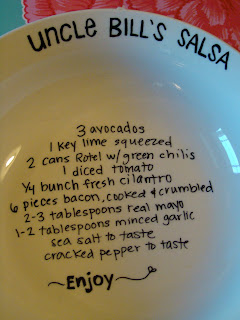 UNCLE BILL'S SALSA
3 avocados
1 key lime squeezed
2 cans Rotel w/green chilis
1 diced tomato
1/4 bunch fresh cilantro
6 pieces bacon, cooked & crumbled
2-3 tablespoons real mayo
1-2 tablespoons minced garlic
sea salt to taste
cracked pepper to taste
~Enjoy~